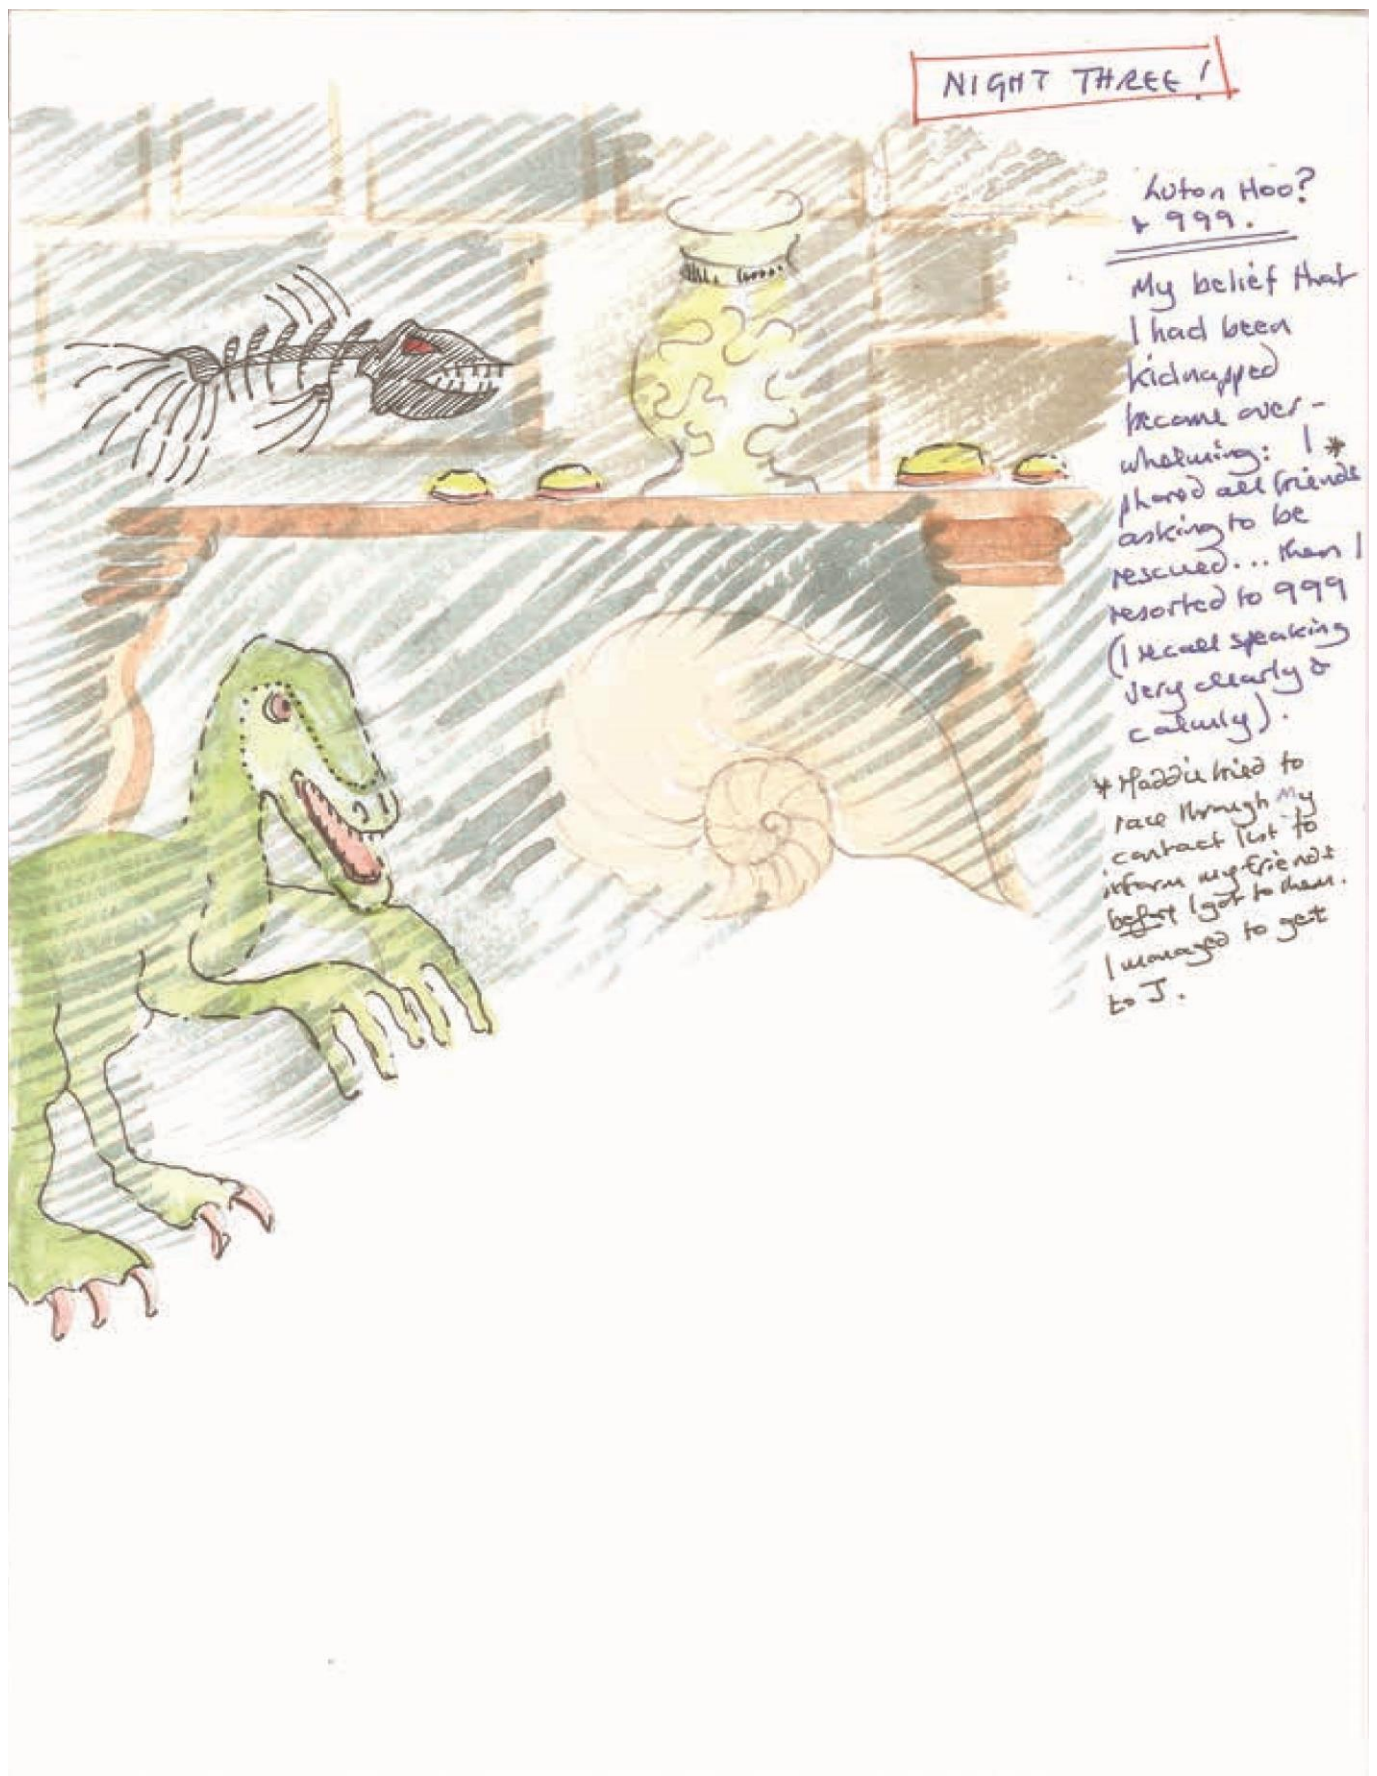 NIGHT THREE!
Luton Hoo?
& 999.
My belief that
I had been
kidnapped
became over-
whelming: I *
phoned all friends
asking to be
rescued... then I
resorted to 999
(I recall speaking
very clearly &
calmly).
* Maddie tried to
race through my
contact list to
inform my friends
before I got to them.
I managed to get
to J.